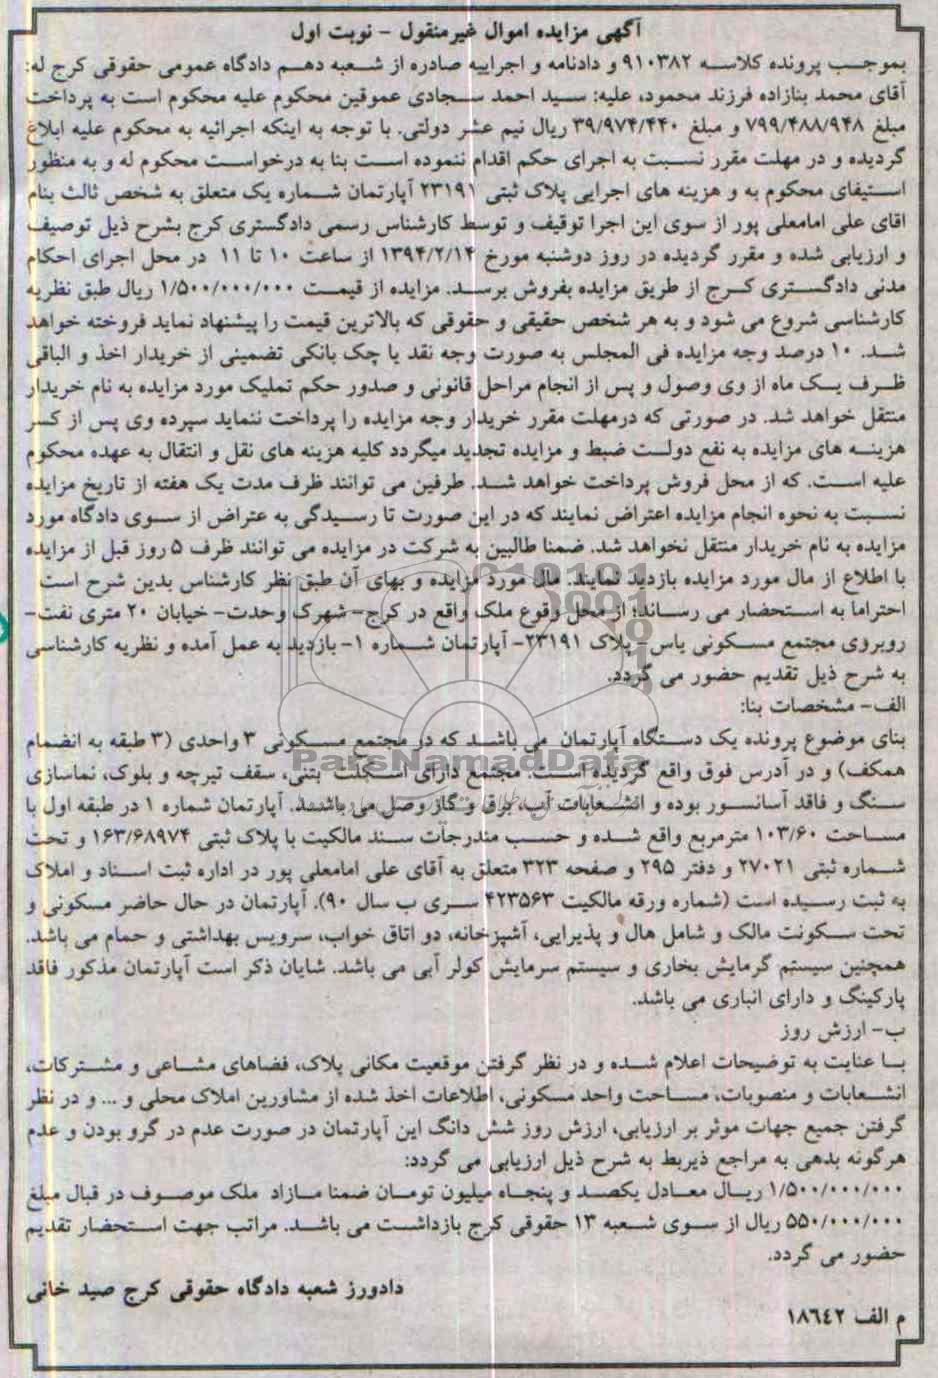 آگهی مزایده اموال غیرمنقول - نوبت اول
بموجب پرونده کلاسه ۹۱۰۳۸۲ و دادنامه و اجراییه صادره از شعبه دهم دادگاه عمومی حقوقی کرج له:
آقای محمد بنازاده فرزند محمود، علیه: سید احمد سجادی عموقین محکوم علیه محکوم است به پرداخت
مبلغ ۷۹۹/۴۸۸/۹۴۸ و مبلغ ۳۹/۹۷۴/۴۴۰ ریال نیم عشر دولتی. با توجه به اینکه اجرائیه به محکوم علیه ابلاغ
گردیده و در مهلت مقرر نسبت به اجرای حکم اقدام ننموده است بنا به درخواست محکوم له و به منظور
استیفای محکوم به و هزینه های اجرایی پلاک ثبتی ۲۳۱۹۱ آپارتمان شماره یک متعلق به شخص ثالث بنام
اقای علی امامعلی پور از سوی این اجرا توقیف و توسط کارشناس رسمی دادگستری کرج بشرح ذیل توصیف
و ارزیابی شده و مقرر گردیده در روز دوشنبه مورخ ۱۳۹۴/۲/۱۴ از ساعت ۱۰ تا ۱۱ در محل اجرای احکام
مدنی دادگستری کرج از طریق مزایده بفروش برسد. مزایده از قیمت ۱/۵۰۰/۰۰۰/۰۰۰ ریال طبق نظریه
کارشناسی شروع می شود و به هر شخص حقیقی و حقوقی که بالاترین قیمت را پیشنهاد نماید فروخته خواهد
شد. ۱۰ درصد وجه مزایده فی المجلس به صورت وجه نقد یا چک بانکی تضمینی از خریدار اخذ و الباقی
ظرف یک ماه از وی وصول و پس از انجام مراحل قانونی و صدور حکم تملیک مورد مزایده به نام خریدار
منتقل خواهد شد. در صورتی که درمهلت مقرر خریدار وجه مزایده را پرداخت ننماید سپرده وی پس از کسر
هزینه های مزایده به نفع دولت ضبط و مزایده تجدید میگردد کلیه هزینه های نقل و انتقال به عهده محکوم
علیه است. که از محل فروش پرداخت خواهد شد. طرفین می توانند ظرف مدت یک هفته از تاریخ مزایده
نسبت به نحوه انجام مزایده اعتراض نمایند که در این صورت تا رسیدگی به عتراض از سوی دادگاه مورد
مزایده به نام خریدار منتقل نخواهد شد. ضمنا طالبین به شرکت در مزایده می توانند ظرف ۵ روز قبل از مزایده
با اطلاع از مال مورد مزایده بازدید نمایند. مال مورد مزایده و بهای آن طبق نظر کارشناس بدین شرح است
احتراما به استحضار می رساند؛ از محل وقوع ملک واقع در کرج- شهرک وحدت- خیابان ۲۰ متری نفت-
روبروی مجتمع مسکونی یاس- پلاک ۲۳۱۹۱- آپارتمان شماره ۱- بازدید به عمل آمده و نظریه کارشناسی
به شرح ذیل تقدیم حضور می گردد.
الف- مشخصات بنا:
بنای موضوع پرونده یک دستگاه آپارتمان می باشد که در مجتمع مسکونی ۳ واحدی (۳ طبقه به انضمام
همکف) و در آدرس فوق واقع گردیده است. مجتمع دارای اسکلت بتنی، سقف تیرچه و بلوک، نماسازی
سنگ و فاقد آسانسور بوده و انشعابات آب، برق و گاز وصل می باشند. آپارتمان شماره ۱ در طبقه اول با
مساحت ۱۰۳/۶۰ مترمربع واقع شده و حسب مندرجات سند مالکیت با پلاک ثبتی ۱۶۳/۶۸۹۷۴ و تحت
شماره ثبتی ۲۷۰۲۱ و دفتر ۲۹۵ و صفحه ۳۲۳ متعلق به آقای علی امامعلی پور در اداره ثبت اسناد و املاک
به ثبت رسیده است (شماره ورقه مالکیت ۴۲۳۵۶۳ سری ب سال ۹۰). آپارتمان در حال حاضر مسکونی و
تحت سکونت مالک و شامل هال و پذیرایی، آشپزخانه، دو اتاق خواب، سرویس بهداشتی و حمام می باشد.
همچنین سیستم گرمایش بخاری و سیستم سرمایش کولر آبی می باشد. شایان ذکر است آپارتمان مذکور فاقد
پارکینگ و دارای انباری می باشد.
ب- ارزش روز
با عنایت به توضیحات اعلام شده و در نظر گرفتن موقعیت مکانی پلاک، فضاهای مشاعی و مشترکات،
انشعابات و منصوبات، مساحت واحد مسکونی، اطلاعات اخذ شده از مشاورین املاک محلی و ... و در نظر
گرفتن جمیع جهات موثر بر ارزیابی، ارزش روز شش دانگ این آپارتمان در صورت عدم در گرو بودن و عدم
هرگونه بدهی به مراجع ذیربط به شرح ذیل ارزیابی می گردد:
۱/۵۰۰/۰۰۰/۰۰۰ ریال معادل یکصد و پنجاه میلیون تومان ضمنا مازاد ملک موصوف در قبال مبلغ
۵۵۰/۰۰۰/۰۰۰ ریال از سوی شعبه ۱۳ حقوقی کرج بازداشت می باشد. مراتب جهت استحضار تقدیم
حضور می گردد.
دادورز شعبه دادگاه حقوقی کرج صید خانی
م الف ۱۸٦٤۲
ParsNamadData